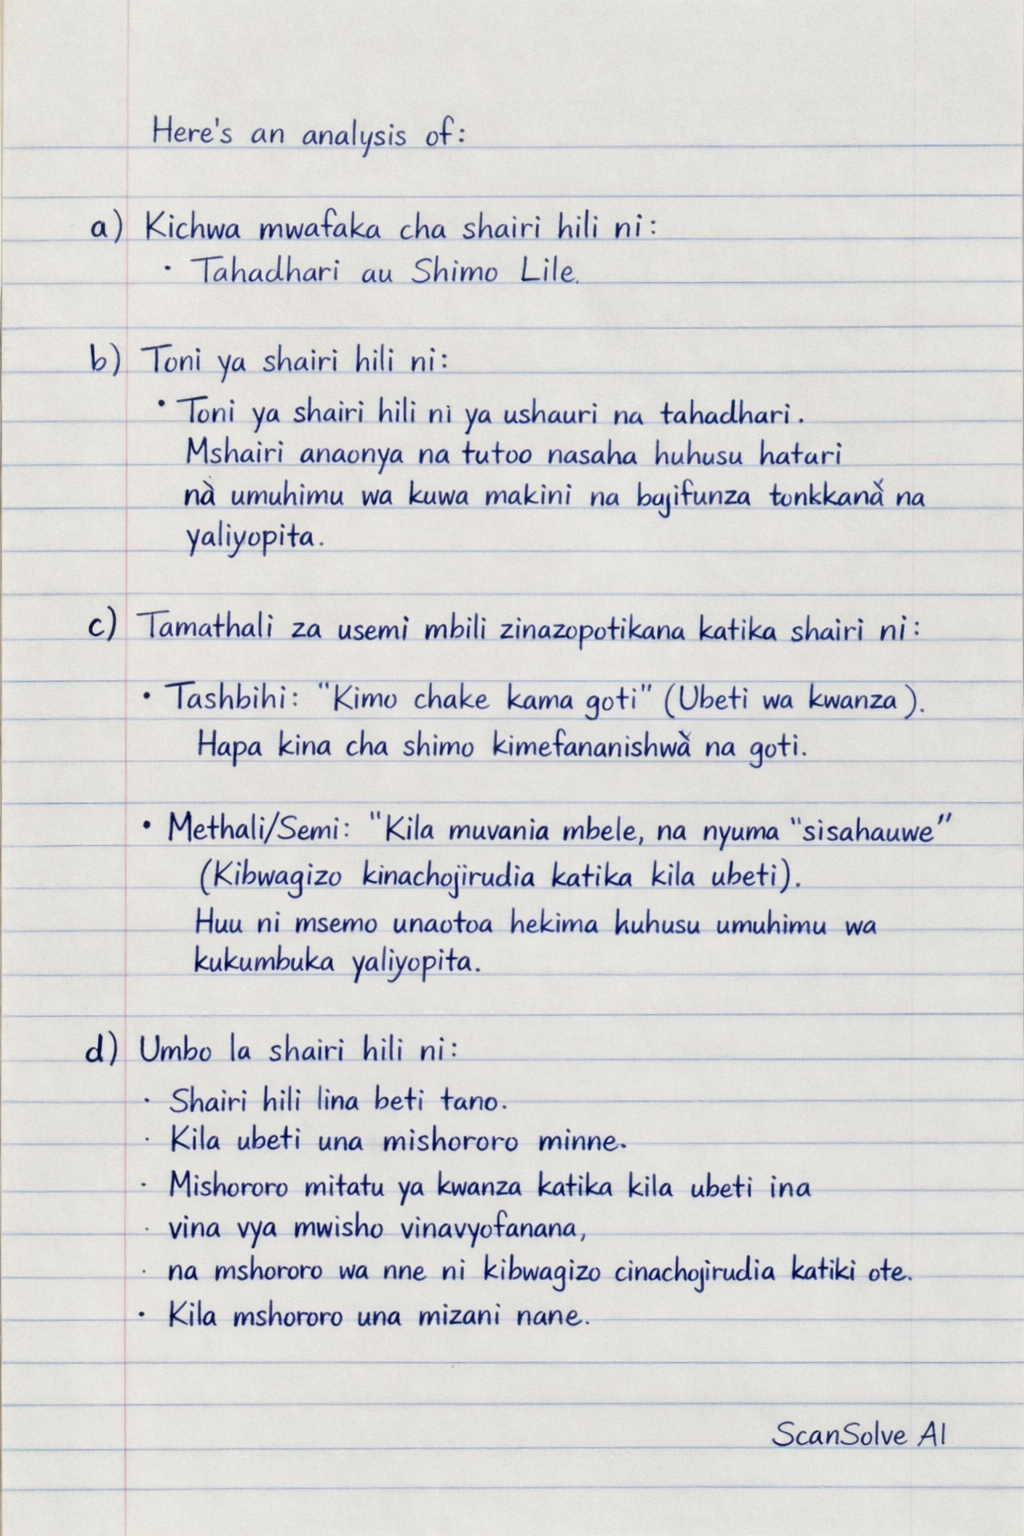 Here's an analysis of:
a) Kichwa mwafaka cha shairi hili ni:
· Tahadhari au Shimo Lile.
b) Toni ya shairi hili ni:
• Toni ya shairi hili ni ya ushauri na tahadhari.
Mshairi anaonya na tutoo nasaha huhusu hatari
nà umuhimu wa kuwa makini na bajifunza tonkkanǎ na
yaliyopita.
c) Tamathali za usemi mbili zinazopotikana katika shairi ni:
• Tashbihi: "Kimo chake kama goti" (Ubeti wa kwanza).
Hapa kina cha shimo kimefananishwǎ na goti.
• Methali/Semi: "Kila muvania mbele, na nyuma "sisahauwe"
(Kibwagizo kinachojirudia katika kila ubeti).
Huu ni msemo unaotoa hekima huhusu umuhimu wa
kukumbuka yaliyopita.
d) Umbo la shairi hili ni:
· Shairi hili lina beti tano.
· Kila ubeti una mishororo minne.
· Mishororo mitatu ya kwanza katika kila ubeti ina
· vina vya mwisho vinavyofanana,
· na mshororo wa nne ni kibwagizo cinachojirudia katiki ote.
• Kila mshororo una mizani nane.
ScanSolve AI